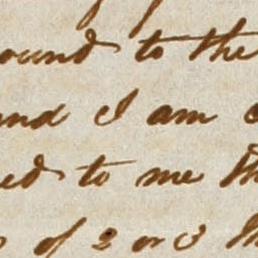 ound to the
and I am
ed to me th
of 2 or 3 th